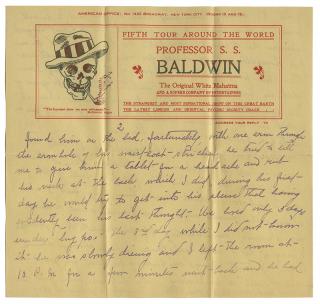 AMERICAN OFFICE: No. 1432 BROADWAY, NEW YORK CITY.
FIFTH TOUR AROUND THE WORLD
PROFESSOR S. S.
BALDWIN
The Original White Mahatma
AND A SUPERB COMPANY OF ENTERTAINERS
THE STRANGEST AND MOST SENSATIONAL SHOW ON THIS GREAT EARTH
THE LATEST LONDON AND ORIENTAL PSYCHIC SOCIETY CRAZE
ADDRESS YOUR REPLY TO
2
found him on the bed, fortunately with one arm through
the armhole of his waistcoat. he tried to tell
me to give him a tablet for a headache and rub
his neck at the back which I did, during his first
day he would try to get into his sleeve that having
evidently been his last thought. We lived only 3 days
The 3rd day while I did not know
it he was slowly dying and I left the room at
10 P.M. for a few minutes went back and he had